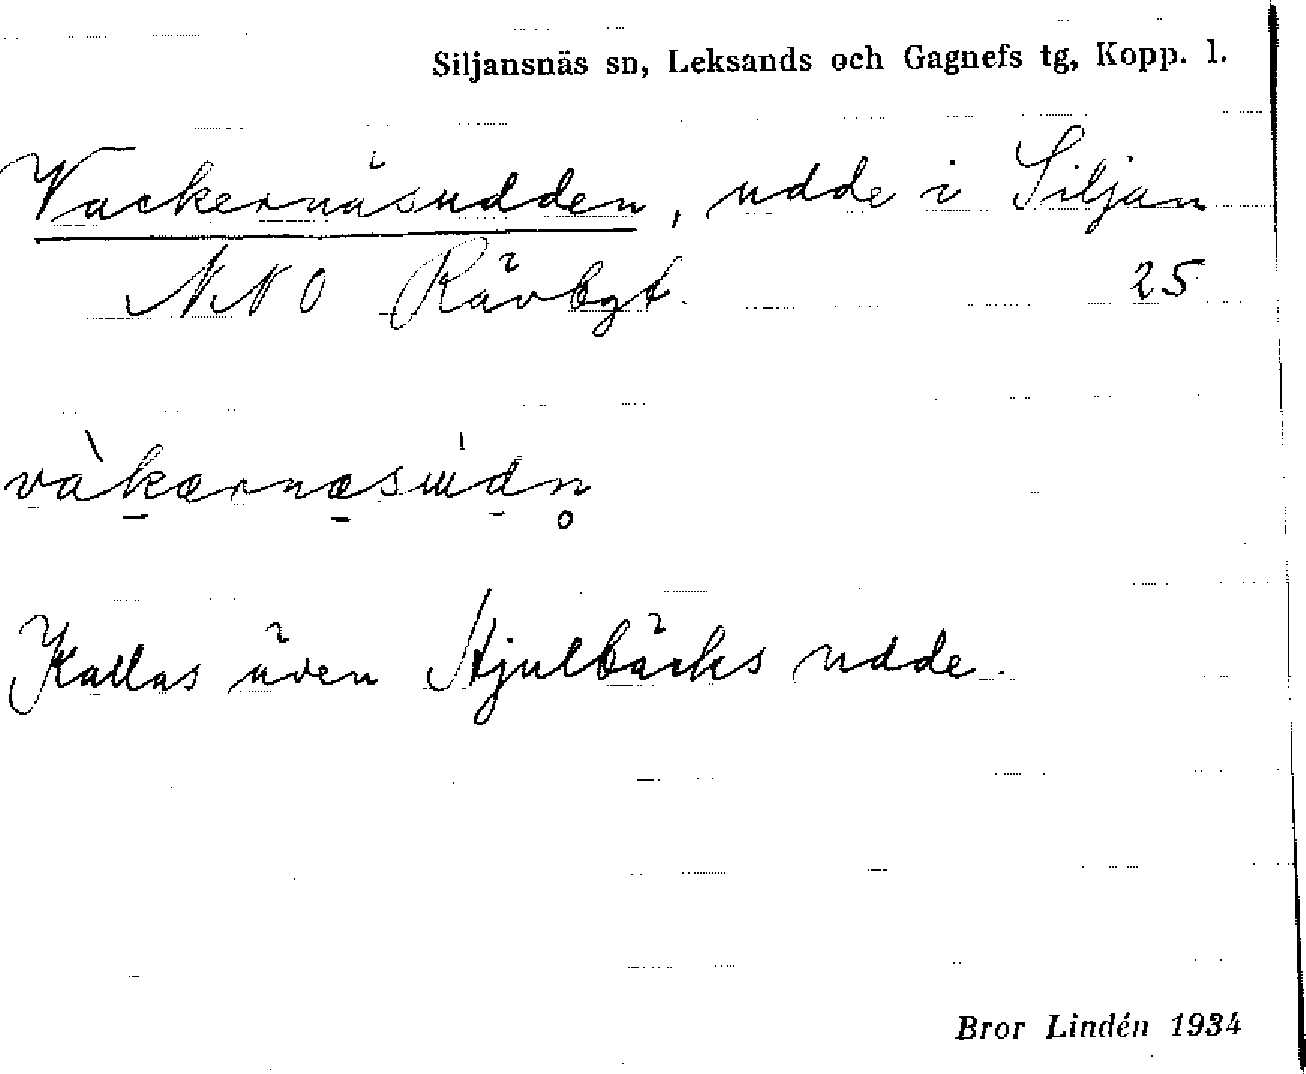 Siljansnäs sn, Leksands och Gagnefs tg, Kopp. l.
Vackernäsudden, udde i Siljan
NNO Rävbgt. 25
vàkærnæsɯ́dn̥
Kallas även Hjulbäcks udde.
Bror Lindén 1934